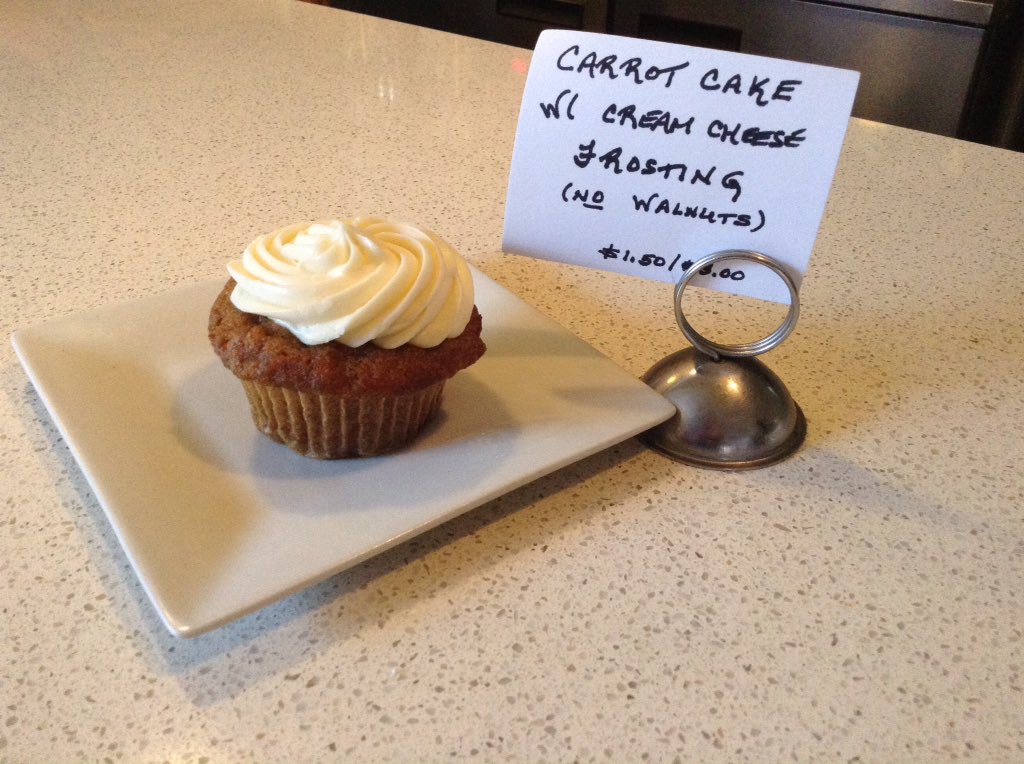 CARROT CAKE
W/ CREAM CHEESE
FROSTING
(NO WALNUTS)
$1.50/$3.00